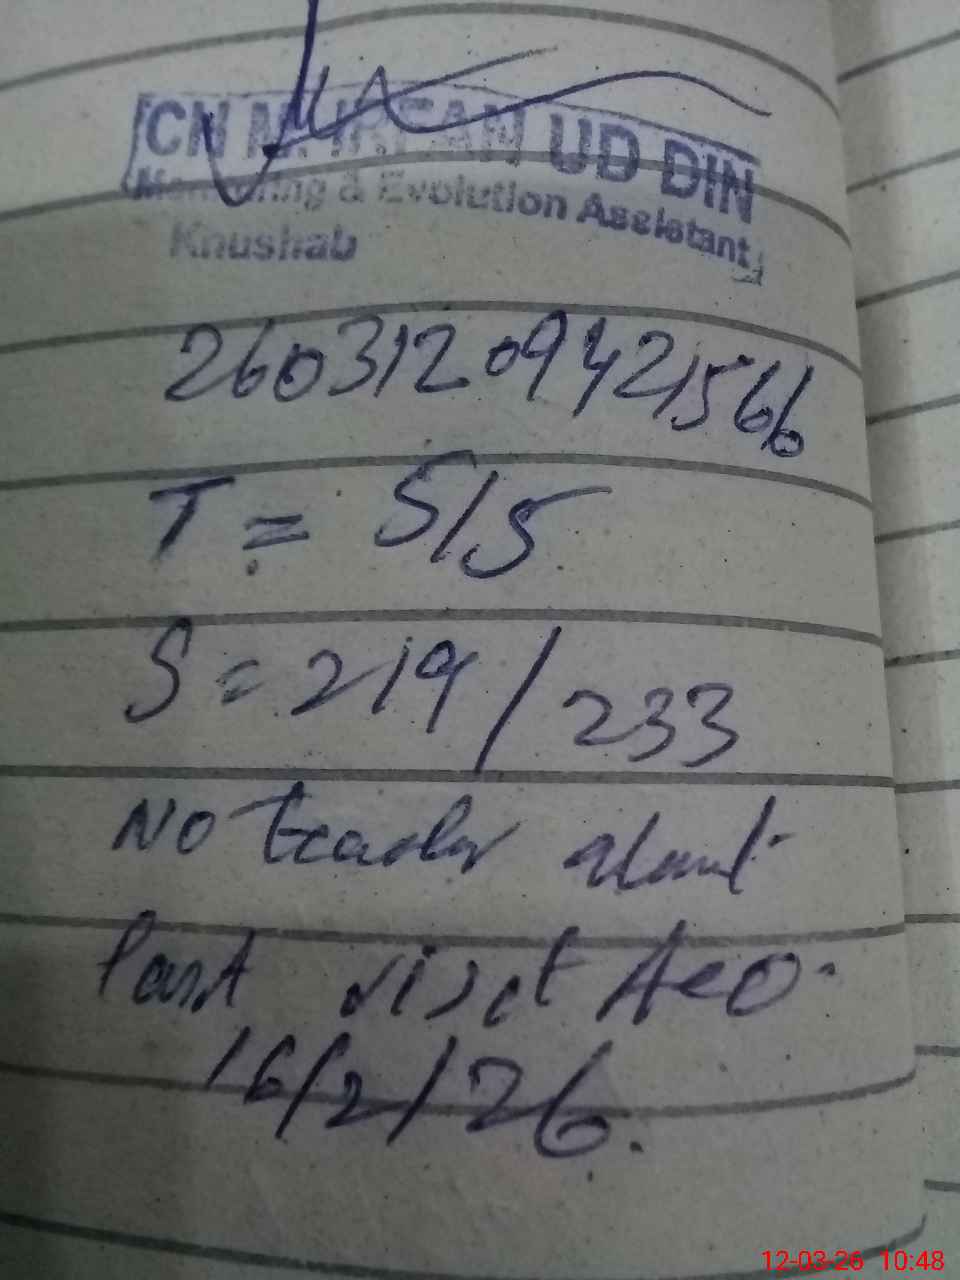 CN M. IRFAN UD DIN
Monitoring & Evolution Assistant
Khushab
260312 09421566
T = 5/5
S = 219/233
No teacher absent
Past visit AEO.
16/2/26.
12-03-26 10:48